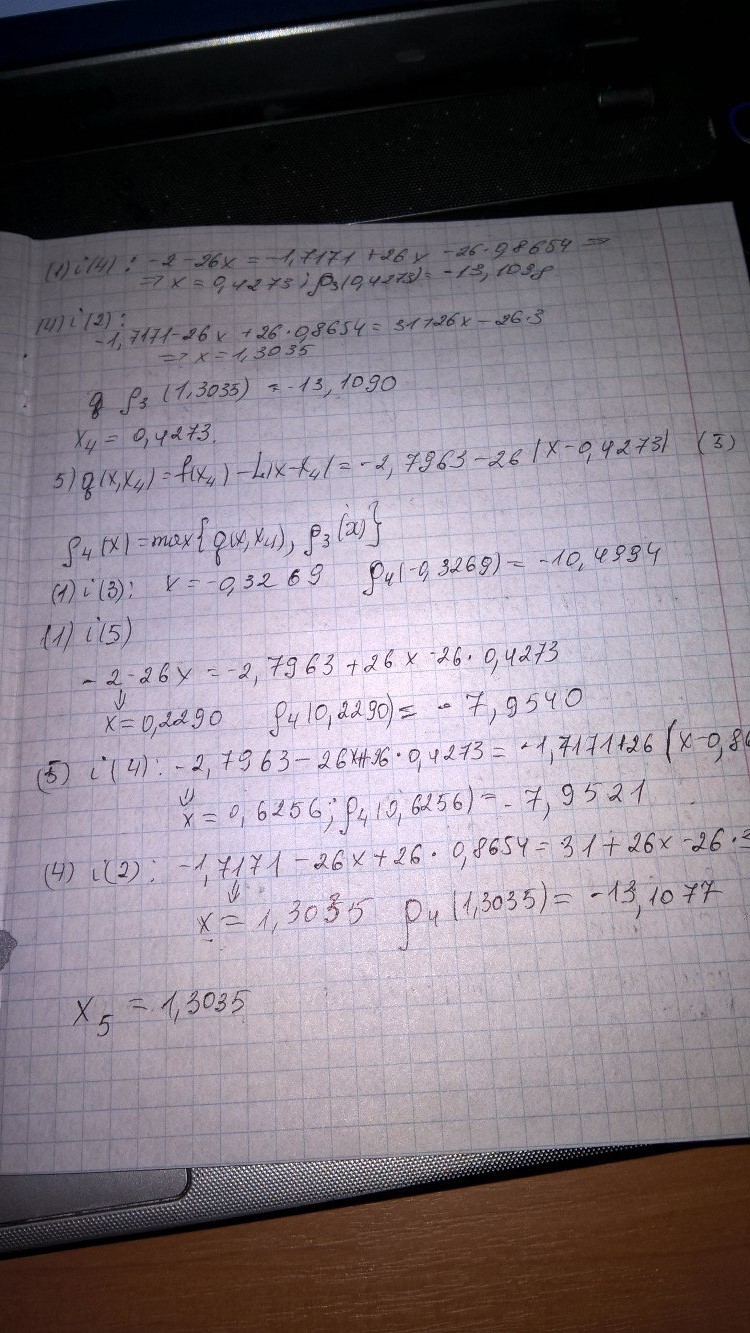 (1) і (4) : -2-26x = -1,7171 + 26x - 26·0,8654 ⇒
⇒ x = 0,4273 ; ρ₃(0,4273) = -13,1098
(4) і (2) :
-1,7171-26x + 26·0,8654 = 31+26x - 26·3
⇒ x = 1,3035
ρ₃ (1,3035) = -13,1090
x₄ = 0,4273.
5) g(x,x₄) = f(x₄) - L|x-x₄| = -2,7963-26|x-0,4273| (5)
ρ₄(x) = max{g(x,x₄), ρ₃(x)}
(1) і (3) : x = -0,3269 ρ₄(-0,3269) = -10,4994
(1) і (5)
-2-26x = -2,7963 + 26x - 26·0,4273
⇓
x = 0,2290 ρ₄(0,2290) = -7,9540
(5) і (4) : -2,7963 - 26x + 26·0,4273 = -1,7171+26(x-0,86
⇓
x = 0,6256; ρ₄(0,6256) = -7,9521
(4) і (2) : -1,7171 - 26x + 26·0,8654 = 31 + 26x - 26·3
⇓
x = 1,3035 ρ₄(1,3035) = -13,1077
x₅ = 1,3035